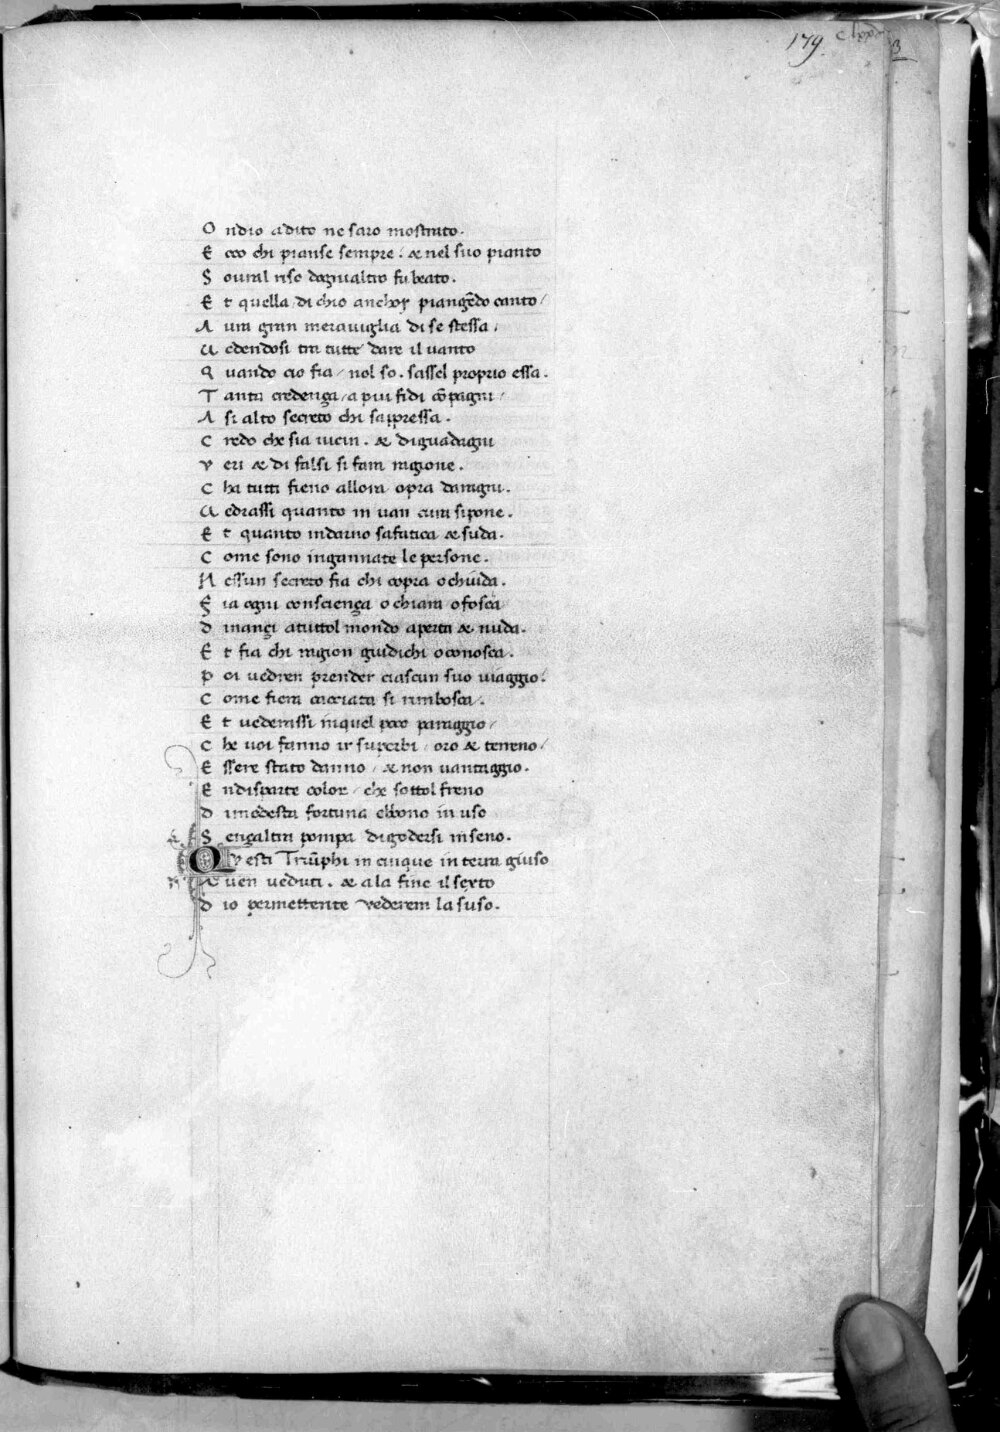 179.
O ndio adito ne saro mostrato.
E cco chi pianse sempre. & nel suo pianto
S oural riso dogнualtro fu beato.
E t quella, di chio anchor piangēdo canto/
A ura gran merauiglia di se stessa.
U edendosi tra tutte dare il uanto
Q uando cio fia/ nol so. sassel proprio essa.
T anta credenza/ a piu fidi cōpagni/
A si alto secreto chi sapressa.
C redo che sia uicin. & diguadagni
V eri & di falsi si fara ragione.
C ha tutti fieno allora opra daragni.
U edrassi quanto in uan cura sipone.
E t quanto indarno safatica & suda.
C ome sono ingannate le persone.
N essun secreto fia chi copra o chiuda.
F ia ogni conscienza o chiara o fosca
D inanzi atuttol mondo aperta & nuda.
E t fia chi ragion giudichi o conosca.
P oi uedren prender ciascun suo uiaggio.
C ome fiera cacciata si rimbosca.
E t uederassi inquel poco paraggio/
C he uoi fanno ir superbi/ oro & terreno/
E ssere stato danno/ & non uantaggio.
E ndisparte color/ che sottol freno
D imodesta fortuna ebbono in uso
S enzaltra pompa digodersi inseno.
Q vesti Triūphi in cinque in terra giuso
A uen ueduti. & ala fine il sexto
D io permettente vederem lasuso.